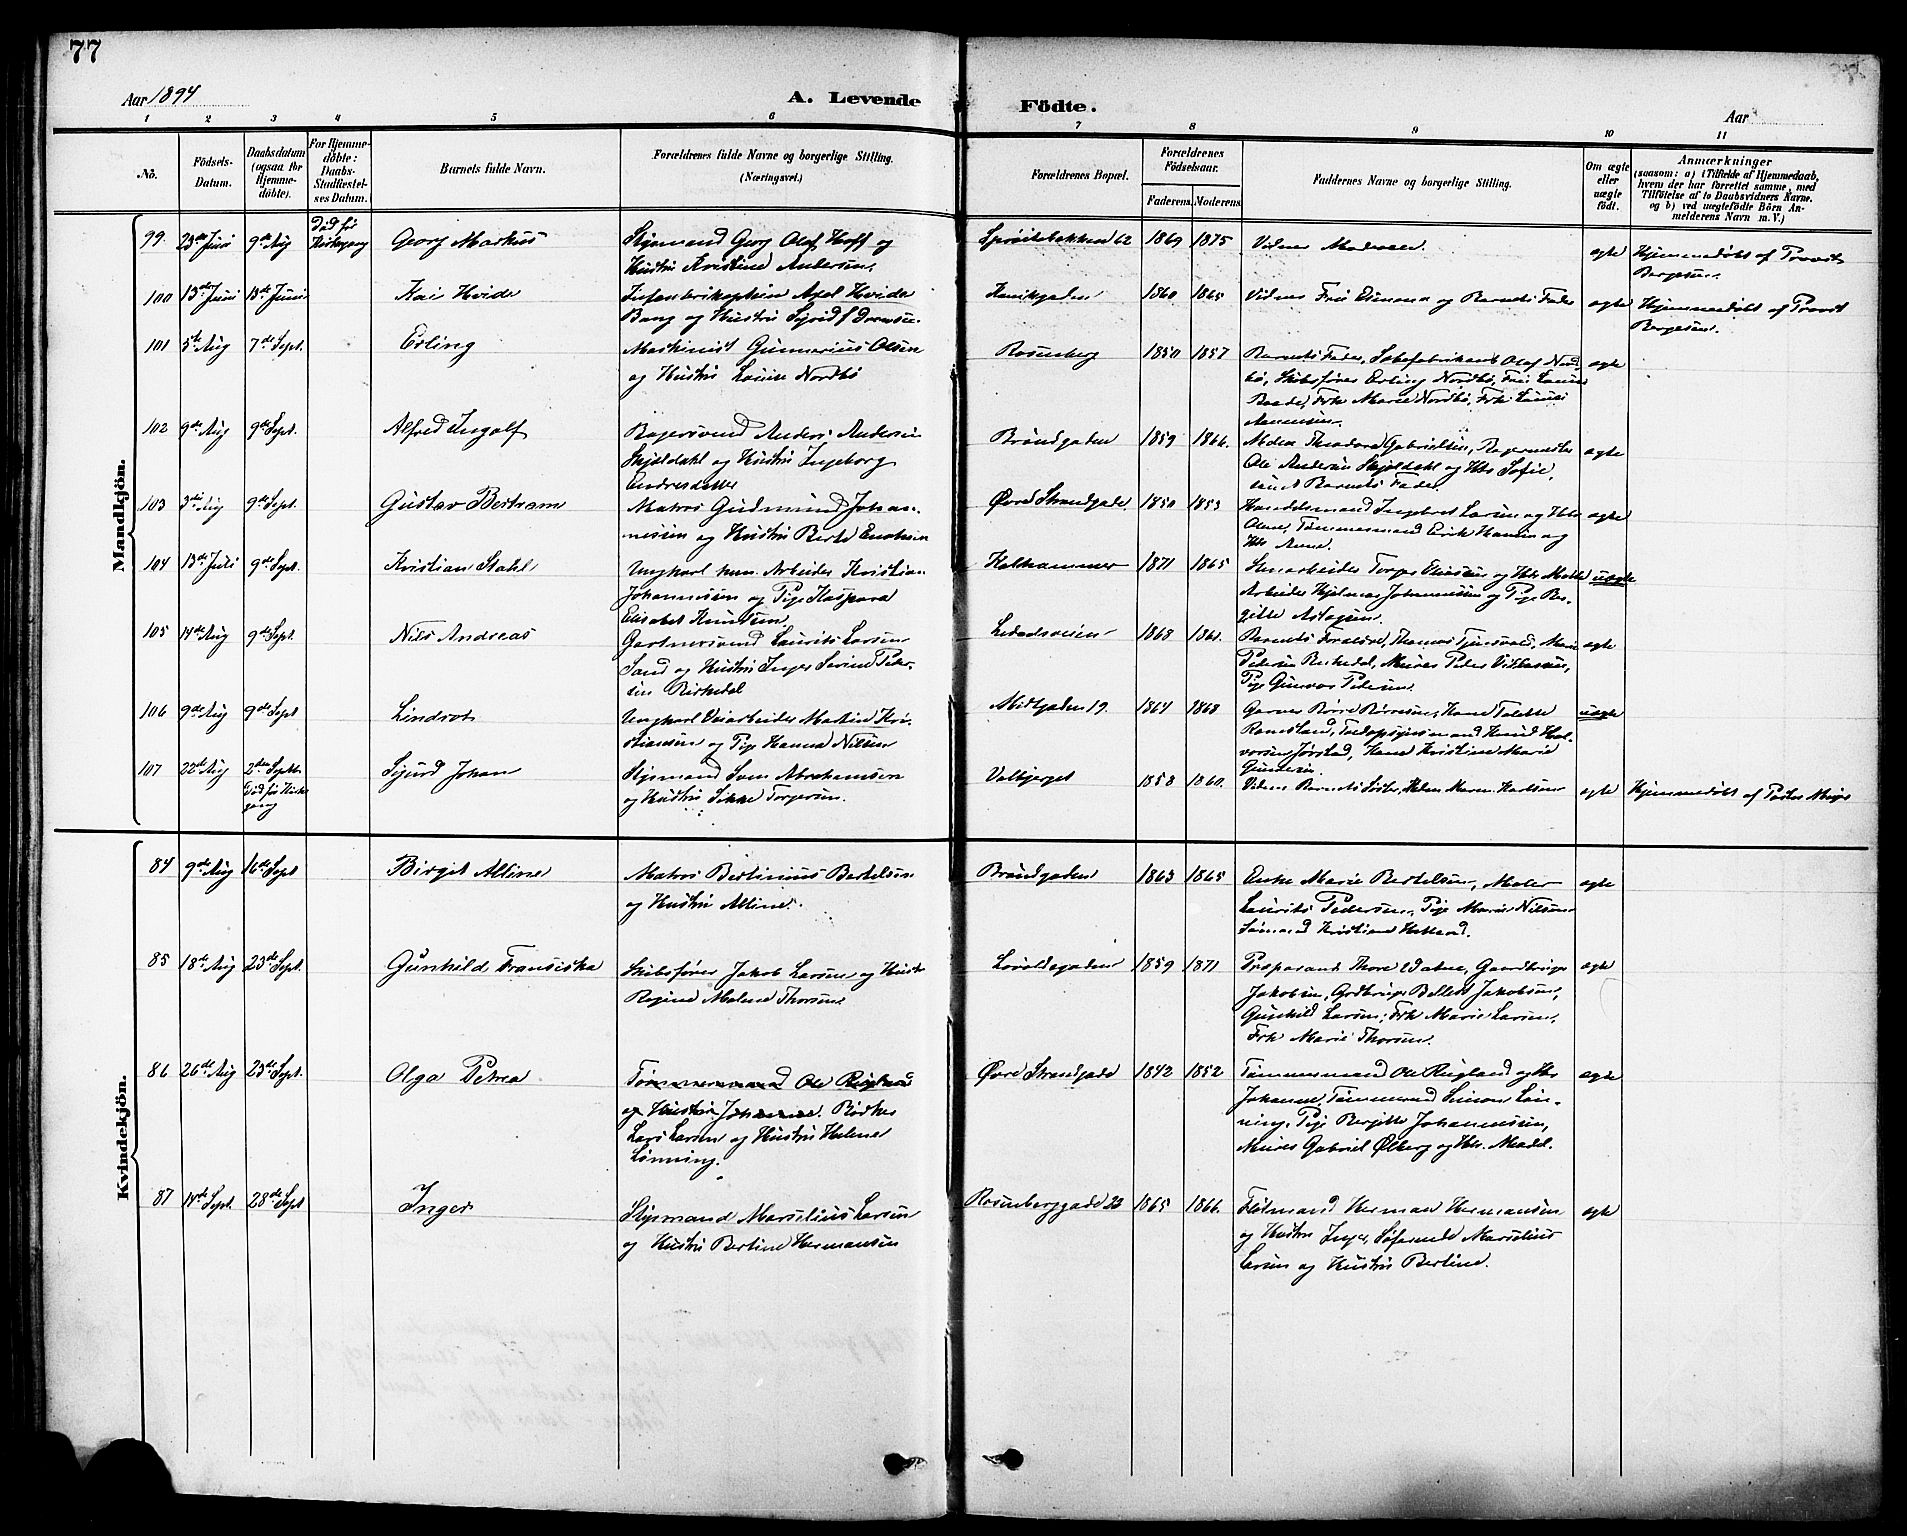 77
Aar 1894
A. Levende Födte.
Aar
1 2 3 4 5 6 7 8 9 10 11
No.
Födsels-
Datum.
Daabsdatum
(ogsaa for
Hjemme-
döbte).
For Hjemme-
döbte:
Daabs-
Stadfæstel-
ses Datum.
Barnets fulde Navn.
Forældrenes fulde Navne og borgerlige Stilling.
(Næringsvei.)
Forældrenes Bopæl.
Forældrenes
Födselsaar.
Faderens. Moderens.
Faddernes Navne og borgerlige Stilling.
Om ægte
eller
uægte
født.
Anmærkninger
(saasom: a) i Tilfælde af Hjemmedaab,
hvem der har forrettet samme, med
Tilføielse af to Daabsvidners Navne,
og b) ved uægtefödte Börn An-
melderens Navn m. V.)
Mandkjön.
99. 23de Juni 9de Aug Död før Kirkegang Georg Markus
Styrmand Georg Olaf Hoff og
Hustru Kristine Andersen.
62 1869 1875 Vidner ægte
Hjemmedøbt af Provst
Borgesen.
100 13de Juni 18de Juni Kai Hvide
Axel Hvide
Bang og Hustru Sigrid
Kanikgaden 1860 1865 Vidner Fru og Barnets Fader ægte
Hjemmedøbt af Provst
Borgesen.
101 5te Aug 7de Sept. Erling
Maskinist Gunnerius Olsen
og Hustru Louise Nordbö
Rosenberg 1850 1857 Barnets Fader, Sæbefabrikant Olaf Nord-
bö, Skibsfører Erling Nordbö, Fru
Frk Marie Nordbö, Frk
ægte
102 9de Aug 9de Sept. Alfred Ingolf
Bagersvend Anders Andersen
Skjældahl og Hustru Ingeborg
Endresdatter
Bröndgaden 1859 1866. Theodora Gabrielsen, Bagermester
Ole Andersen Skjældahl og Hst Sofie,
samt Barnets Fader.
ægte
103 3die Aug 9de Sept. Gustav Bertram
Matros Gudmund Johan-
nessen og Hustru Berte Enoksen
Øvre Strandgade 1850 1853 Handelsmand Ingebret Larsen og Hst
Olene, Tømmermand Erik Hansen og
Hst Anne.
ægte
104 13de Juli 9de Sept. Kristian Stahl
Ungkarl Arbeider Kristian
Johannessen og Pige Kaspara
Elisabet Knudsen.
Kalhammer 1871 1865 Torger Eliassen og Hst
Arbeider Hjelmer Johannessen og Pige Ber-
gitte
uægte
105 14de Aug 9de Sept. Nils Andreas
Gartnersvend Laurits Larsen
Sand og Hustru Inger Serine Peder-
sen Birkedal
Ledaalsveien 1868 1861. Barnets Forældre, Thomas Tjensvold,
Pedersen Birkedal, Murer Peder
Pige Gunvor Pedersen.
ægte
106 9de Aug 9de Sept Lindrot
Ungkarl Veiarbeider Martin Kri-
stiansen og Pige Hanna Nilsen
Midtgaden 19. 1864 1868 Garver Børre Børresen, Kone
Ramsland, Knud Hal-
vorsen Jørstad, Kone Kristine Marie
Gundersen.
uægte
107 22de Aug 2den Septbr Död før Kirkegang Sigurd Johan
Styrmand Sam Abrahamsen
og Hustru Sikke Torgersen.
Valbjerget 1858 1860. Vidner Barnets Søster, Helene Karlsen
ægte Hjemmedøbt af Pastor
Kvindekjön.
84 9de Aug 16de Sept Birgit Alline
Matros Bertinius Bertelsen
og Hustru Alline.
Bröndgaden 1863 1865 Enke Marie Bertelsen, Maler
Laurits Pedersen, Pige Marie Nilsen
Sömand Kristian
ægte
85 18de Aug 23de Sept. Gunhild Fransiska
Skibsfører Jakob Larsen og Hustr
Regine Malene Thorsen
Lövoldsgaden 1859 1871 Præparand Thore Gaardbruger
Jakobsen, Grdbruger Jakobsen,
Gunhild Larsen, Frk Marie Larsen,
Frk Marie Thorsen.
ægte
86 26de Aug 23de Sept. Olga Petrea
Tømmermand Ole Rügland
og Hustru Johanne. Bödker
Lars Larsen og Hustru Helene
Lönning.
Øvre Strandgade 1842 1852 Tömmermand Ole Rügland og Hst
Johanne, Tömmermand Simon Lön-
ning, Pige Bergitte Johannessen,
Murer Gabriel Ølberg og Hst. Madl.
ægte
87 14de Sept. 28de Sept Inger
Styrmand Marselius Larsen
og Hustru Bertine Hermansen
Rosenberggade 23 1865 1866. Feilmand Herman Hermansen
og Hustru Inger, Søfarende Marselius
Larsen og Hustru Bertine.
ægte